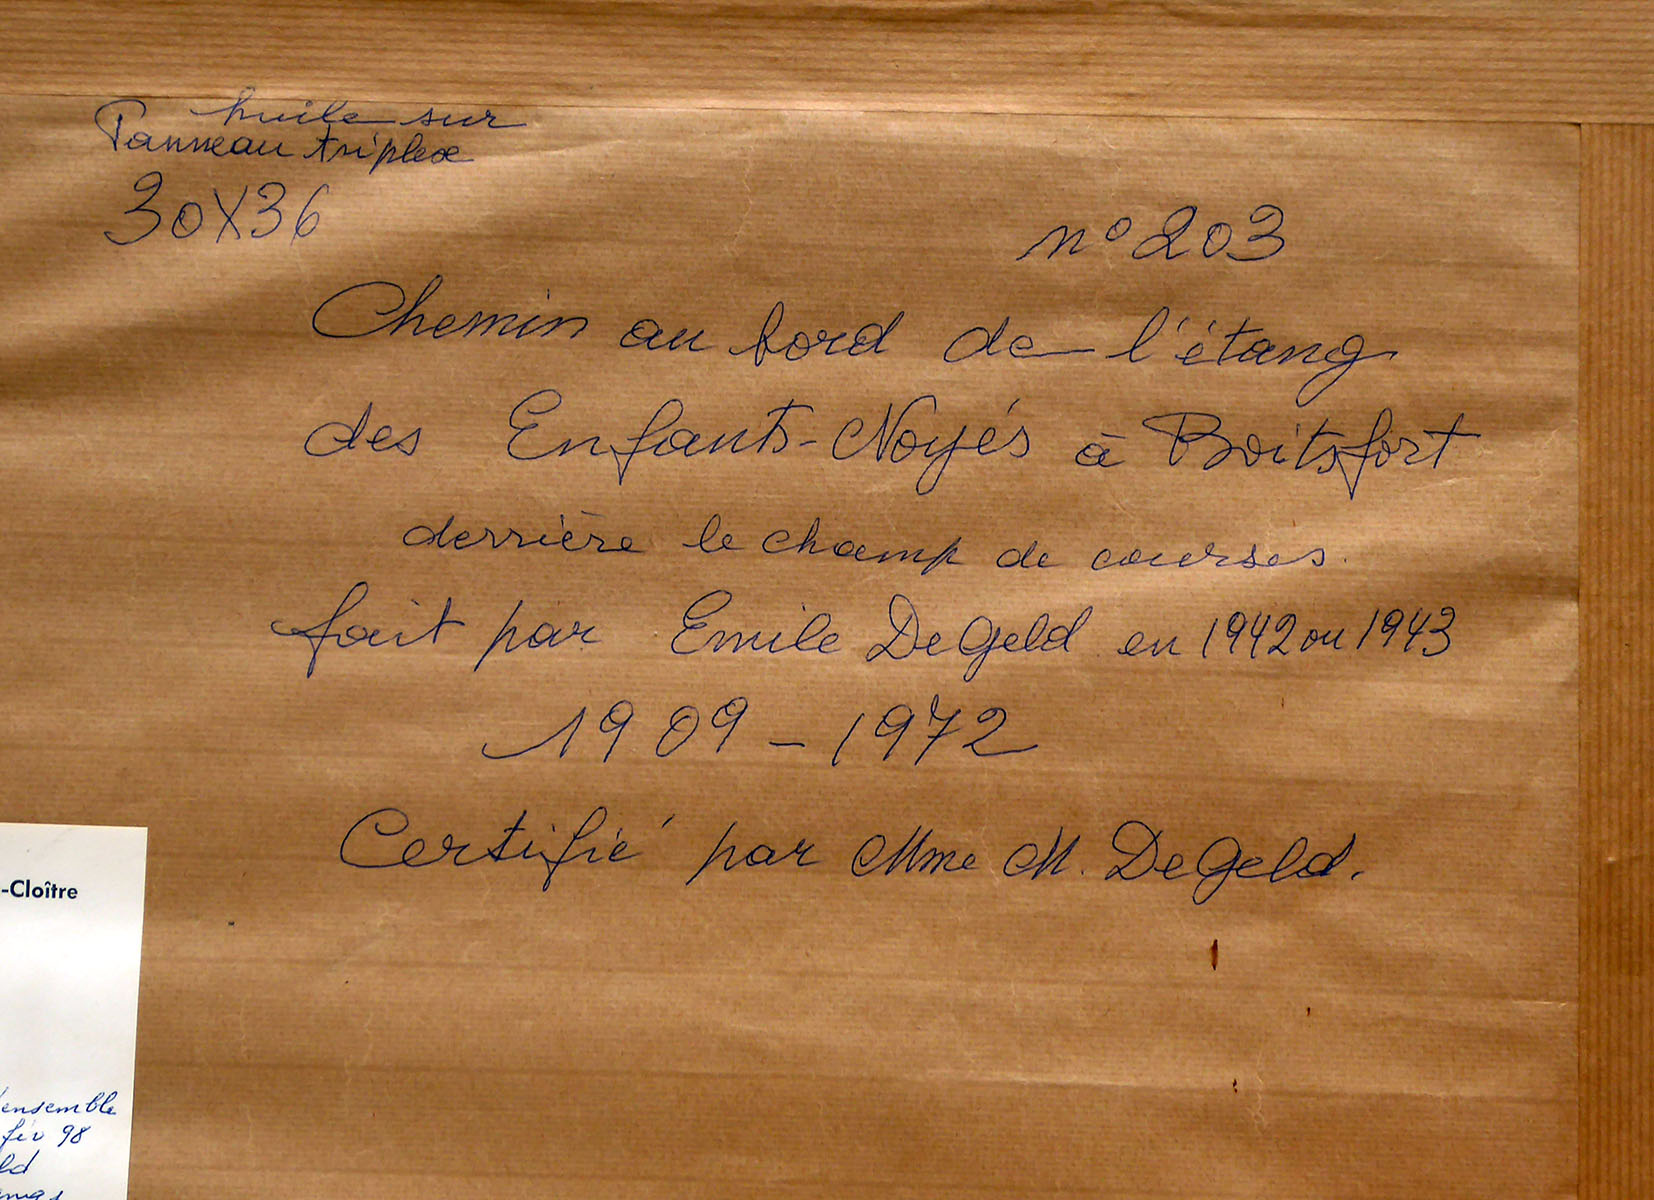 huile sur
Panneau triplex
30X36
n° 203
Chemin au bord de l'étang
des Enfants-Noyés à Boitsfort
derrière le champ de courses.
fait par Emile DeGeld en 1942 ou 1943
1909-1972
Certifié par Mme M. DeGeld.
-Cloître
ensemble
fév 98
ld